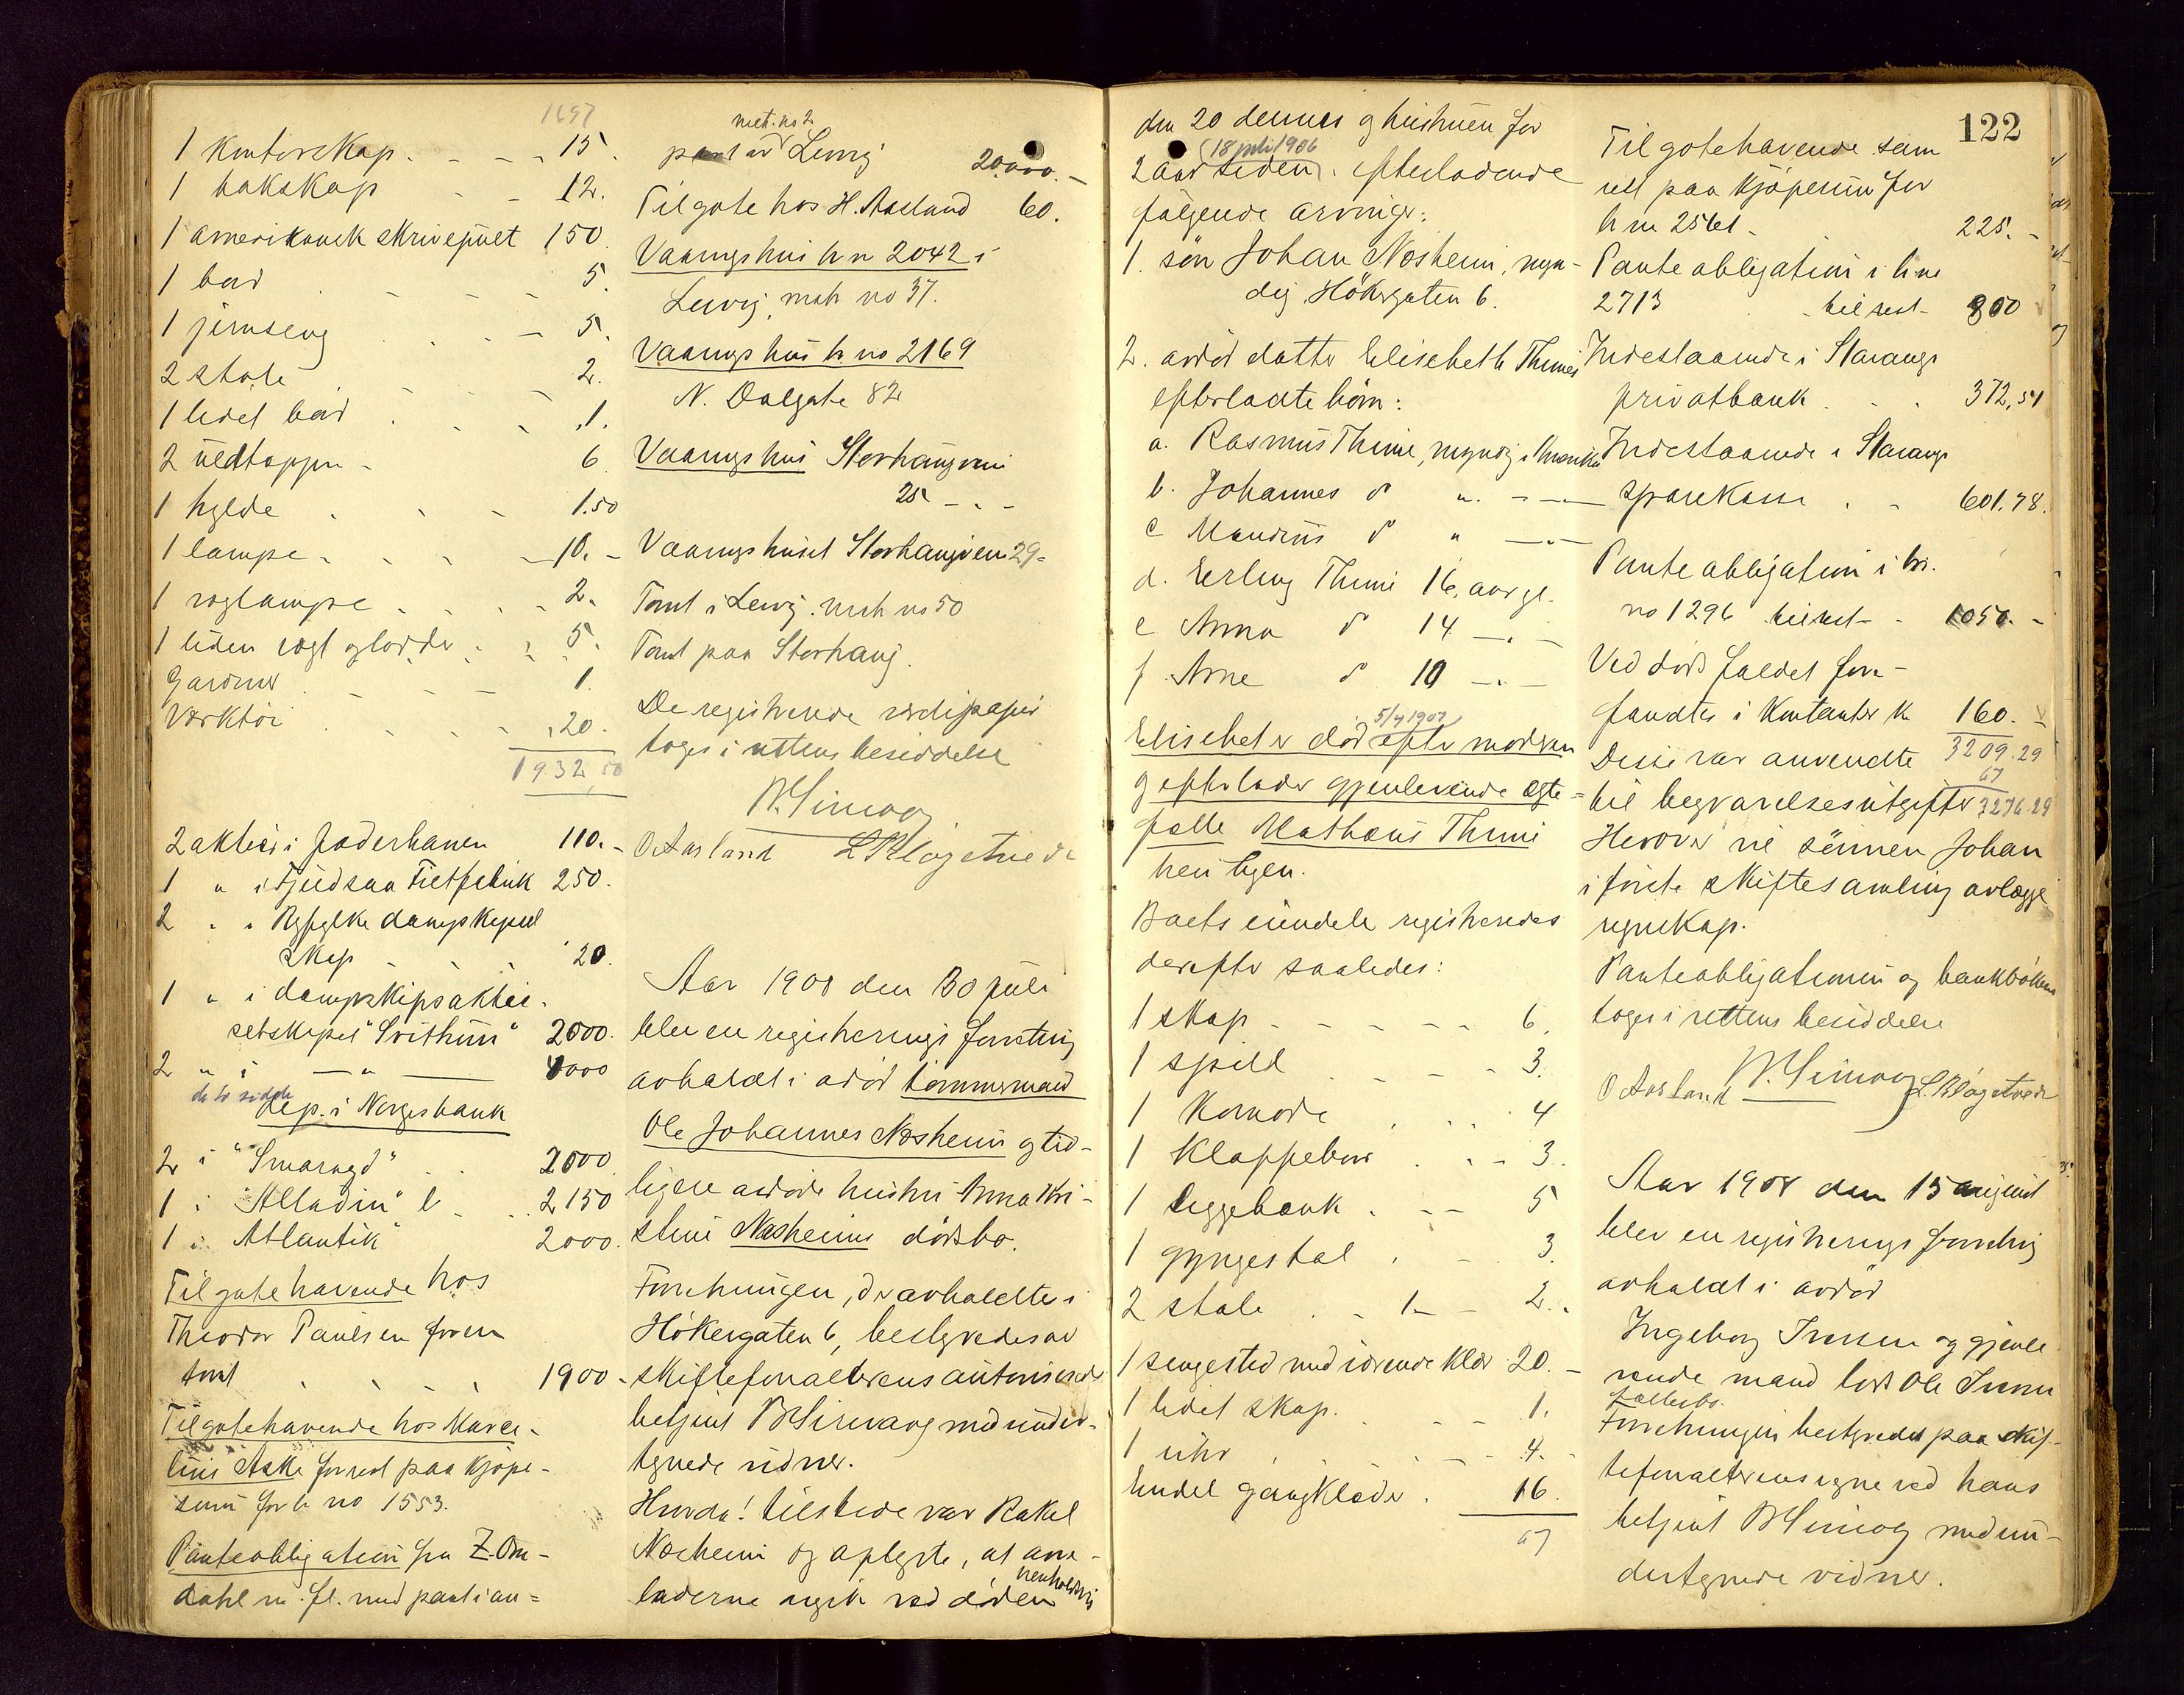 1697
1 Kontorskap. 15.
1 bakskap 12.
1 amerikansk skrivepult 150
1 bord 5.
1 jernseng 5.
2 stole 2.
1 lidet bord 1.
2 uldtæpper 6
1 hylde 1.50
1 lampe 10.-
1 voglampe 2.
1 liden vogt og lodder 5.
Gardiner 1.
Værktöi 20.
1932,50
2 aktier i Jæderbanen 110.-
1 " i Fjeldsaa Filtfabrik 250.
2 " i Ryfylke dampskipssel
skap 20.
1 " i dampskipsaktie-
selskapet "Svithun" 2000.
2 " i —"— 4000
de to sidste
dep. i Norges bank
2 i "Smaragd" 2000
1 i "Alladin" 2150
1 i "Atlantik" 2000.
Tilgotehavende hos
Theodor Paulsen for en
tomt 1900.-
Tilgotehavende hos Karee-
lius Aske for rest paa kjöpe-
sum for h no 1553.
Panteobligation fra Z. Om-
dahl m. fl. med pant i an-
mat. no 2
part av Lervig 20.000.-
Tilgote hos H. Aaeland 60.
Vaaningshus h n 2042 i
Lervig, matr no 37.
Vaaningshus h no 2169
N. Dalgate 82
Vaaningshus Storhaugveien
25 - . -
Vaaningshuset Storhaugveien 29-
Tomt i Lervig. matr no 50
Tomt paa Storhaug.
De registrerede værdipapir
toges i rettens besiddelse
B. Sirevaag
O Aarland L Klögetvedt
Aar 1908 den 30 juli
blev en registrerings forretning
avholdt i avdöd tömmermand
Ole Johannes Næsheim og tid-
ligere avdöde hustru Anna Kri-
stine Næsheims dödsbo.
Forretningen, der avholdtes i
Hökergaten 6, bestyredes av
skifteforvalterens autoriserede
betjent B Sirevaag med under-
tegnede vidner.
Hvorda! tilstede var Rakel
Næsheim og oplyste, at arve-
laderne avgik ved döden henholdsvis
122
den 20 dennes og hustruen for
(18 juli 1906
2 aar siden. efterladende
fölgende arvinger:
1. sön Johan Næsheim, myn-
dig Hökergaten 6.
2. avdöd datter Elisebeth Thimes
efterladte börn:
a. Rasmus Thime, myndig i Amerika
b. Johannes do " - —
c Mandius do " —"—
d. Erling Thime 16 aar gl.
e Anna do 14 —"—
f. Arne do 10 —"—
5/4 1907
Elisebet er död efter moderen
og efterlader gjenlevende ægte-
fælle Mathæus Thime
her i byen.
Boets eiendele registreredes
derefter saaledes:
1 skap 6.
1 speil 3.
1 Komode 4
1 Klappebord 3.
1 liggebænk 5
1 gyngestol 3.
2 stole 1- 2.
1 sengested med værende klær 20.-
1 lidet skap. 1.
1 uhr 4.-
Endel gangklæder. 16.
67
Tilgotehavende som
rest paa kjöpesum for
h no 2561 225.-
Panteobligation i h no
2713 til rest 800
Indestaaende i Stavanger
privatbank 372,51
Indestaaende i Stavanger
sparekasse 601.78.
Panteobligation i hs.
no 1296 til rest 1050.-
Ved dödsfaldet fore-
fandtes i kontanter kr 160.-
3209.29
Disse var anvendte
67
til begravelsesutgifter 3276.29
Herover vil sönnen Johan
i förste skiftesamling avlægge
regnskap.
Panteobligationen og bankbökerne
toges i rettens besiddelse
B. Sirevaag
O Aarland L. Klögetvedt
Aar 1908 den 15 august
blev en registrerings forretning
avholdt i avdöd
Ingeborg Iversen og gjenle
vende mand lods Ole Iversen
fællesbo.
Forretningen bestyredes paa skif-
teforvalterens vegne ved hans
betjent B Sirevaag med un-
dertegnede vidner.